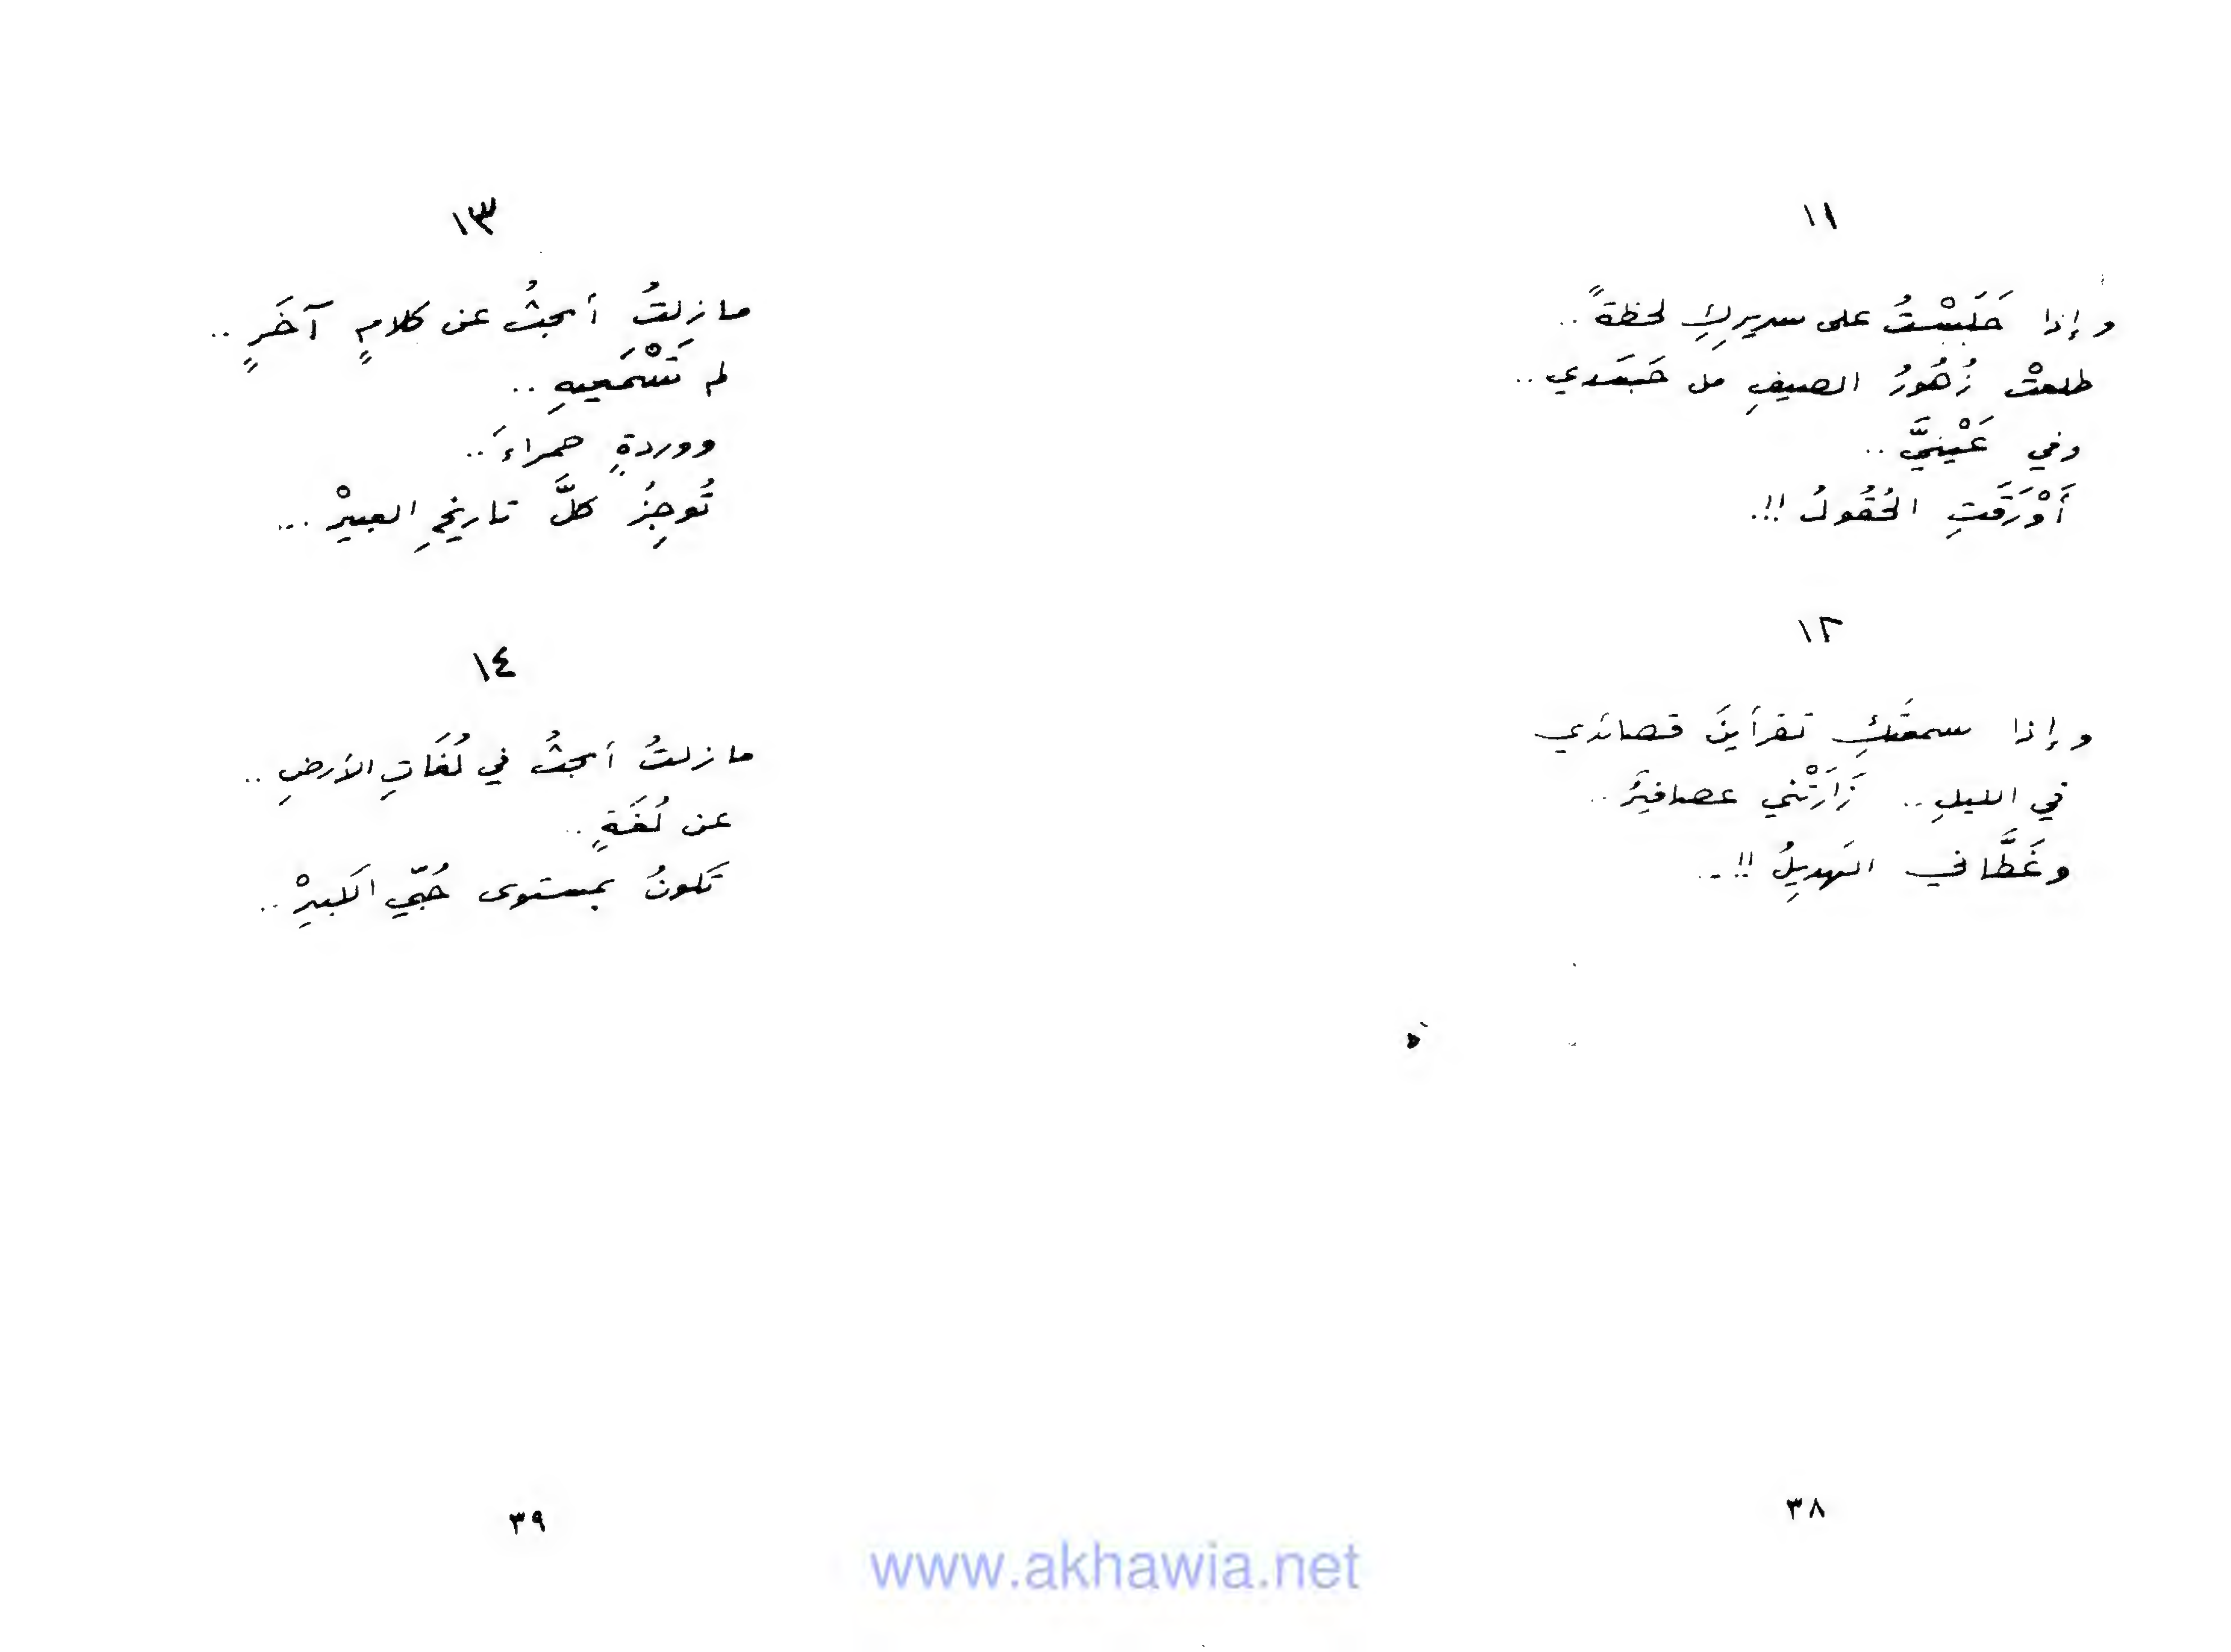 ١١
وإذا جَلَسْتُ على سريرِكِ لحظةً ..
طلعتْ زُهُورُ الصيفِ من جَسَدي ..
وفي عَيْنيَّ ..
أَوْرَقَتِ الحُقُولُ !!.
١٢
وإذا سمعتَكِ تقرأينَ قصائدي
في الليلِ .. زَارَتْني عصافيرٌ ..
وغَطَّاني الهديلُ !!..
٣٨
١٣
مازلتُ أبحثُ عن كلامٍ آخَرٍ ..
لم تَسْمَعيهِ ..
ووردةٍ حمراءَ ..
تُوجِزُ كلَّ تاريخِ العبيرْ ...
١٤
مازلتُ أبحثُ في لُغَاتِ الأرضِ ..
عن لُغَةٍ ..
تكونُ بمستوى حُبّي الكبيرْ ..
٣٩
www.akhawia.net